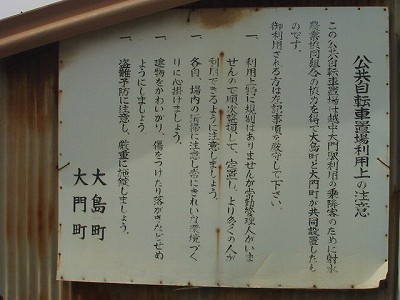 公共自転車置場利用上の注意
この公共自転車置場は越中大門駅利用の乗降客のために射水
農業協同組合の協力を得て大島町と大門町が共同設置したも
のです。
御利用される方は左記事項を厳守して下さい。
一、利用上特に規制はありませんが常勤管理人がいま
せんので順次整頓して、定置し、より多くの人が
利用できるように注意しましょう。
一、各自、場内の清掃に注意し常にきれいな環境づく
りに心掛けましょう。
一、建物をかわいがり、傷をつけたり落がきなどせぬ
ようにしましょう
一、盗難予防に注意し、厳重に施錠しましょう。
大島町
大門町